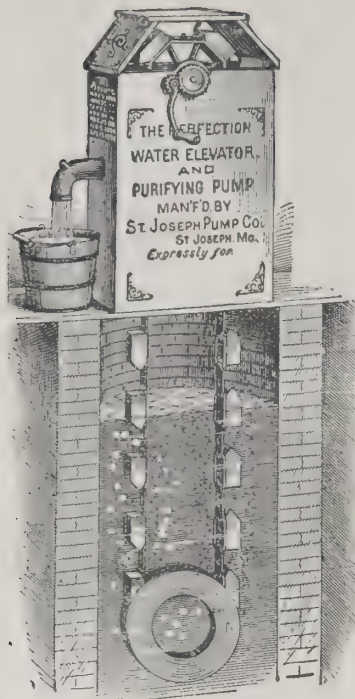 THE PERFECTION
WATER ELEVATOR
AND
PURIFYING PUMP
MAN'F'D. BY
ST. JOSEPH PUMP CO.
ST JOSEPH. MO.
Expressly for.